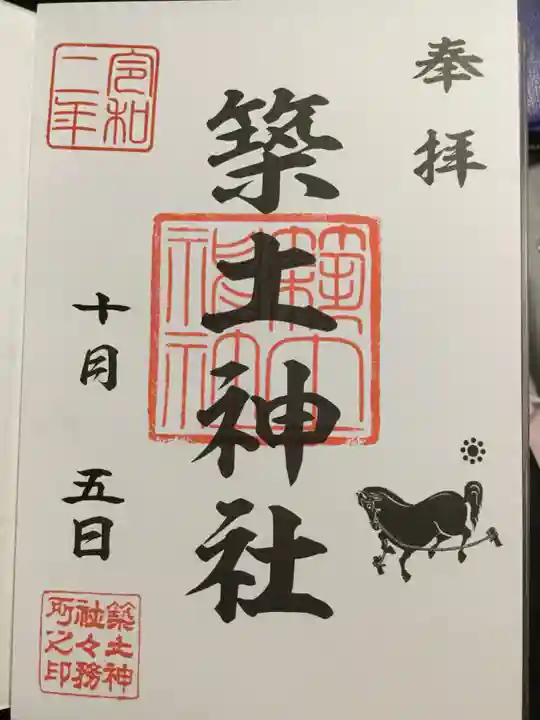 奉拝
築土神社
築土神社
令和
二年
十月 五日
築土神
社々務
所之印